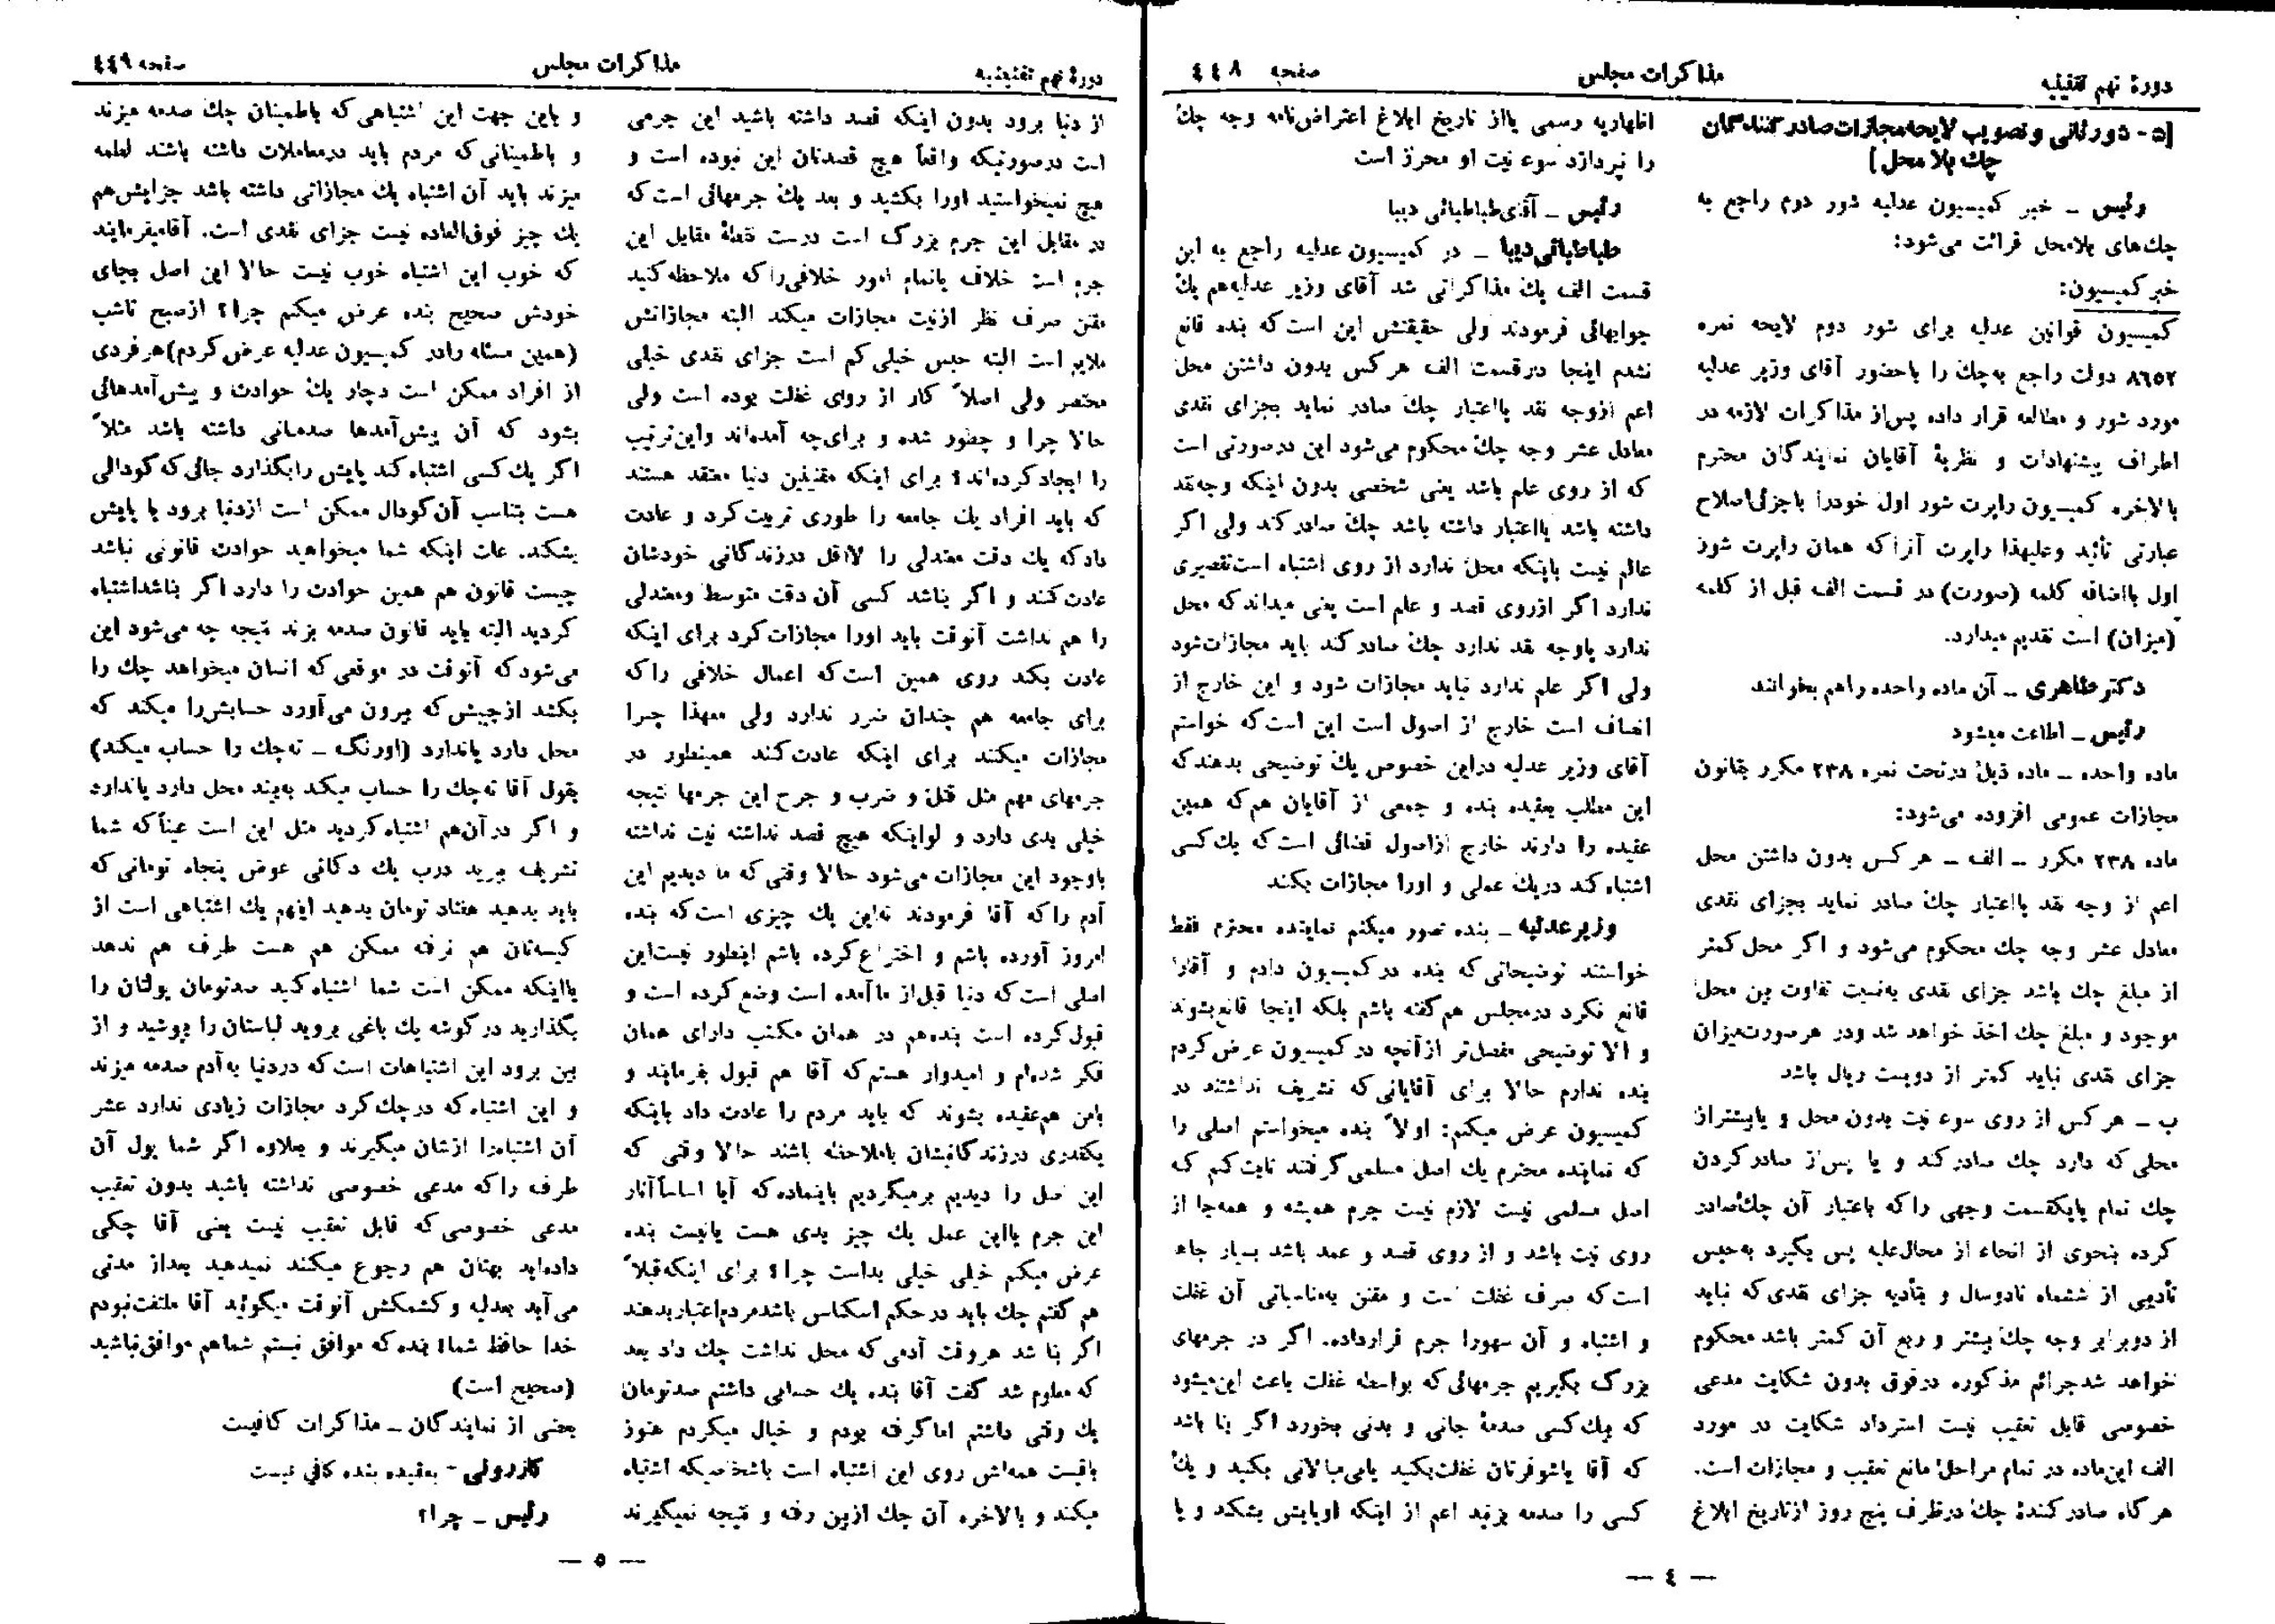 دورهٔ نهم تقنینیه
مذاکرات مجلس
صفحه ٤٤٨
[٥- شور ثانی و تصویب لایحه مجازات صادر کنندگان
چك بلا محل]
رئیس ــ خبر کمیسیون عدلیه شور دوم راجع به
چك‌های بلامحل قرائت می‌شود:
خبر کمیسیون:
کمیسیون قوانین عدلیه برای شور دوم لایحه نمره
٨٦٥٢ دولت راجع به‌چك را با حضور آقای وزیر عدلیه
مورد شور و مطالعه قرار داده پس‌از مذاکرات لازمه در
اطراف پیشنهادات و نظریهٔ آقایان نمایندگان محترم
بالاخره کمیسیون راپرت شور اول خودرا باجزئی‌اصلاح
عبارتی تأئید وعلیهذا راپرت آنرا که همان راپرت شور
اول بااضافه کلمه (صورت) در قسمت الف قبل از کلمه
(میزان) است تقدیم میدارد.
دکتر طاهری ــ آن ماده واحده را هم بخوانند
رئیس ــ اطاعت میشود
ماده واحده ــ ماده ذیل درتحت نمره ٢٣٨ مکرر بقانون
مجازات عمومی افزوده می‌شود:
ماده ٢٣٨ مکرر ــ الف ــ هر کس بدون داشتن محل
اعم از وجه نقد یااعتبار چك صادر نماید بجزای نقدی
معادل عشر وجه چك محکوم می‌شود و اگر محل کمتر
از مبلغ چك باشد جزای نقدی به‌نسبت تفاوت بین محل
موجود و مبلغ چك اخذ خواهد شد ودر هرصورت‌میزان
جزای نقدی نباید کمتر از دویست ریال باشد
ب ــ هر کس از روی سوء نیت بدون محل و یابیشتراز
محلی که دارد چك صادر کند و یا پس‌از صادر کردن
چك تمام یایکقسمت وجهی را که باعتبار آن چك‌صادر
کرده بنحوی از انحاء از محال‌علیه پس بگیرد به‌حبس
تأدیبی از ششماه تادوسال و بتأدیه جزای نقدی که نباید
از دوبرابر وجه چك بیشتر و ربع آن کمتر باشد محکوم
خواهد شد جرائم مذکوره درفوق بدون شکایت مدعی
خصوصی قابل تعقیب نیست استرداد شکایت در مورد
الف این‌ماده در تمام مراحل مانع تعقیب و مجازات است.
هر گاه صادر کنندهٔ چك درظرف پنج روز ازتاریخ ابلاغ
اظهاریه رسمی یااز تاریخ ابلاغ اعتراض‌نامه وجه چك
را نپردازد سوء نیت او محرز است
رئیس ــ آقای طباطبائی دیبا
طباطبائی دیبا ــ در کمیسیون عدلیه راجع به این
قسمت الف یك مذاکراتی شد آقای وزیر عدلیه‌هم یك
جوابهائی فرمودند ولی حقیقتش این است که بنده قانع
نشدم اینجا درقسمت الف هر کس بدون داشتن محل
اعم ازوجه نقد یااعتبار چك صادر نماید بجزای نقدی
معادل عشر وجه چك محکوم می‌شود این درصورتی است
که از روی علم باشد یعنی شخصی بدون اینکه وجه‌نقد
داشته باشد یااعتبار داشته باشد چك صادر کند ولی اگر
عالم نیست باینکه محل ندارد از روی اشتباه است‌تقصیری
ندارد اگر ازروی قصد و علم است یعنی میداند که محل
ندارد یاوجه نقد ندارد چك صادر کند باید مجازات‌شود
ولی اگر علم ندارد نباید مجازات شود و این خارج از
انصاف است خارج از اصول است این است که خواستم
آقای وزیر عدلیه دراین خصوص یك توضیحی بدهند که
این مطلب بعقیده بنده و جمعی از آقایان هم که همین
عقیده را دارند خارج ازاصول قضائی است که یك کسی
اشتباه کند دریك عملی و اورا مجازات بکند
وزیر عدلیه ــ بنده تصور میکنم نماینده محترم فقط
خواستند توضیحاتی که بنده در کمیسیون دادم و آقارا
قانع نکرد درمجلس هم گفته باشم بلکه اینجا قانع‌بشوند
و الا توضیحی مفصل‌تر ازآنچه در کمیسیون عرض کردم
بنده ندارم حالا برای آقایانی که تشریف نداشتند در
کمیسیون عرض میکنم: اولاً بنده میخواستم اصلی را
که نماینده محترم یك اصل مسلمی گرفتند ثابت کنم که
اصل مسلمی نیست لازم نیست جرم همیشه و همه‌جا از
روی نیت باشد و از روی قصد و عمد باشد بسیار جاها
است که صرف غفلت است و مقنن به‌مناسباتی آن غفلت
و اشتباه و آن سهورا جرم قرارداده. اگر در جرمهای
بزرگ بگیریم جرمهائی که بواسطه غفلت باعث این‌میشود
که بیك کسی صدمهٔ جانی و بدنی بخورد اگر بنا باشد
که آقا یاشوفرتان غفلت‌بکنید یابی‌مبالاتی بکنید و یك
کسی را صدمه بزنید اعم از اینکه اوپایش بشکند و یا
— ٤ —
دورهٔ نهم تقنینیه
مذاکرات مجلس
صفحه ٤٤٩
از دنیا برود بدون اینکه قصد داشته باشید این جرمی
است درصورتیکه واقعاً هیچ قصدتان این نبوده است و
هیچ نمیخواستید اورا بکشید و بعد یك جرمهائی است که
در مقابل این جرم بزرگ است درست نقطهٔ مقابل این
جرم است خلاف یاتمام امور خلافی‌را که ملاحظه کنید
مقنن صرف نظر ازنیت مجازات میکند البته مجازاتش
ملایم است البته حبس خیلی کم است جزای نقدی خیلی
مختصر ولی اصلاً کار از روی غفلت بوده است ولی
حالا چرا و چطور شده و برای‌چه آمده‌اند واین‌ترتیب
را ایجاد کرده‌اند؟ برای اینکه مقننین دنیا معتقد هستند
که باید افراد یك جامعه را طوری تربیت کرد و عادت
داد که یك دقت معتدلی را لااقل درزندگانی خودشان
عادت کنند و اگر بناشد کسی آن دقت متوسط ومعتدلی
را هم نداشت آنوقت باید اورا مجازات کرد برای اینکه
عادت بکند روی همین است که اعمال خلافی را که
برای جامعه هم چندان ضرر ندارد ولی معهذا چرا
مجازات میکنند برای اینکه عادت کند همینطور در
جرمهای مهم مثل قتل و ضرب و جرح این جرمها نتیجه
خیلی بدی دارد و لواینکه هیچ قصد نداشته نیت نداشته
باوجود این مجازات می‌شود حالا وقتی که ما دیدیم این
آدم را که آقا فرمودند نه‌این یك چیزی است که بنده
امروز آورده باشم و اختراع کرده باشم اینطور نیست‌این
اصلی است که دنیا قبل‌از ماآمده است وضع کرده است و
قبول کرده است بنده‌هم در همان مکتب دارای همان
فکر شده‌ام و امیدوار هستم که آقا هم قبول بفرمایند و
بامن هم‌عقیده بشوند که باید مردم را عادت داد باینکه
یکقدری درزندگانیشان باملاحظه باشند حالا وقتی که
این اصل را دیدیم برمیگردیم باینماده که آیا اساساً آثار
این جرم یااین عمل یك چیز بدی هست یانیست بنده
عرض میکنم خیلی خیلی بداست چرا؟ برای اینکه‌قبلاً
هم گفتم چك باید درحکم اسکناس باشد مردم‌اعتباربدهند
اگر بنا شد هروقت آدمی که محل نداشت چك داد بعد
که معلوم شد گفت آقا بنده یك حسابی داشتم صدتومان
یك وقتی داشتم اما گرفته بودم و خیال میکردم هنوز
باقیست همه‌اش روی این اشتباه است باشخاصیکه اشتباه
میکند و بالاخره آن چك ازبین رفته و نتیجه نمیگیرند
و باین جهت این اشتباهی که باطمینان چك صدمه میزند
و باطمینانی که مردم باید درمعاملات داشته باشند لطمه
میزند باید آن اشتباه یك مجازاتی داشته باشد جزایش‌هم
یك چیز فوق‌العاده نیست جزای نقدی است. آقامیفرمایند
که خوب این اشتباه خوب نیست حالا این اصل بجای
خودش صحیح بنده عرض میکنم چرا؟ ازصبح تاشب
(همین مسئله رادر کمیسیون عدلیه عرض کردم) هرفردی
از افراد ممکن است دچار یك حوادث و پیش‌آمدهائی
بشود که آن پیش‌آمدها صدماتی داشته باشد مثلاً
اگر یك کسی اشتباه کند پایش رابگذارد جائی که گودالی
هست بتناسب آن گودال ممکن است ازدنیا برود یا پایش
بشکند. علت اینکه شما میخواهید حوادث قانونی نباشد
چیست قانون هم همین حوادث را دارد اگر بناشداشتباه
کردید البته باید قانون صدمه بزند نتیجه چه می‌شود این
می‌شود که آنوقت در موقعی که انسان میخواهد چك را
بکشد ازجیبش که بیرون می‌آورد حسابش‌را میکند که
محل دارد یاندارد (اورنگ ــ ته‌چك را حساب میکند)
بقول آقا ته‌چك را حساب میکند به‌بیند محل دارد یاندارد
و اگر درآن‌هم اشتباه کردید مثل این است عیناً که شما
تشریف ببرید درب یك دکانی عوض پنجاه تومانی که
باید بدهید هفتاد تومان بدهید اینهم یك اشتباهی است از
کیسه‌تان هم رفته ممکن هم هست طرف هم ندهد
یااینکه ممکن است شما اشتباه کنید صدتومان پولتان را
بگذارید در گوشه یك باغی بروید لباستان را بپوشید و از
بین برود این اشتباهات است که دردنیا به‌آدم صدمه میزند
و این اشتباه که درچك کرد مجازات زیادی ندارد عشر
آن اشتباه‌را ازشان میگیرند و بعلاوه اگر شما پول آن
طرف را که مدعی خصوصی نداشته باشید بدون تعقیب
مدعی خصوصی که قابل تعقیب نیست یعنی آقا چکی
داده‌اید بهتان هم رجوع میکنند نمیدهید بعداز مدتی
می‌آید بعدلیه و کشمکش آنوقت میگوئید آقا ملتفت‌نبودم
خدا حافظ شما؟ بنده که موافق نیستم شماهم موافق‌نباشید
(صحیح است)
بعضی از نمایندگان ــ مذاکرات کافیست
کازرونی - بعقیده بنده کافی نیست
رئیس ــ چرا؟
— ٥ —